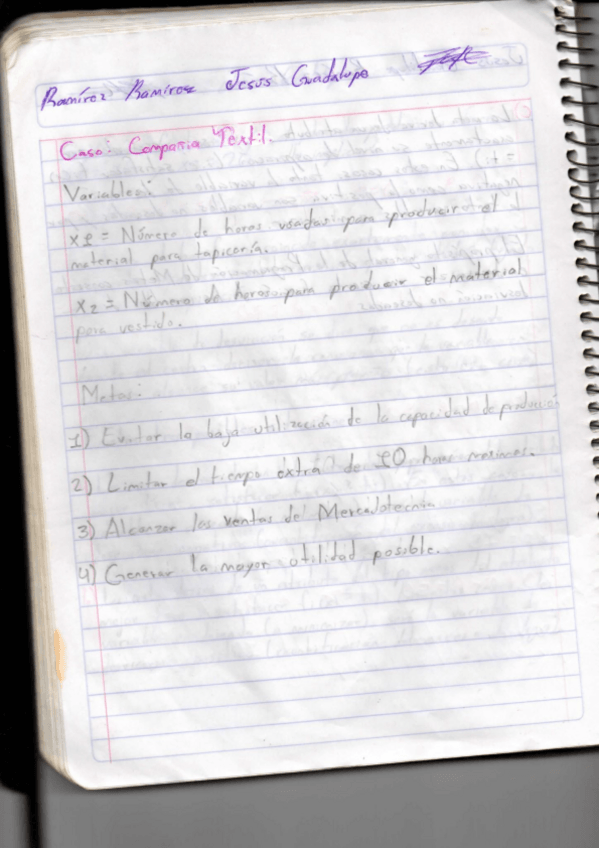 Ramírez Ramírez Jesus Guadalupe
Caso: Compañia Textil.
Variables:
x1 = Número de horas usadas para producir el
material para tapicería.
x2 = Número de horas para producir el material
para vestido.
Metas:
1) Evitar la baja utilización de la capacidad de producción
2) Limitar el tiempo extra de 10 horas máximas.
3) Alcanzar las ventas de Mercadotecnia
4) Generar la mayor utilidad posible.